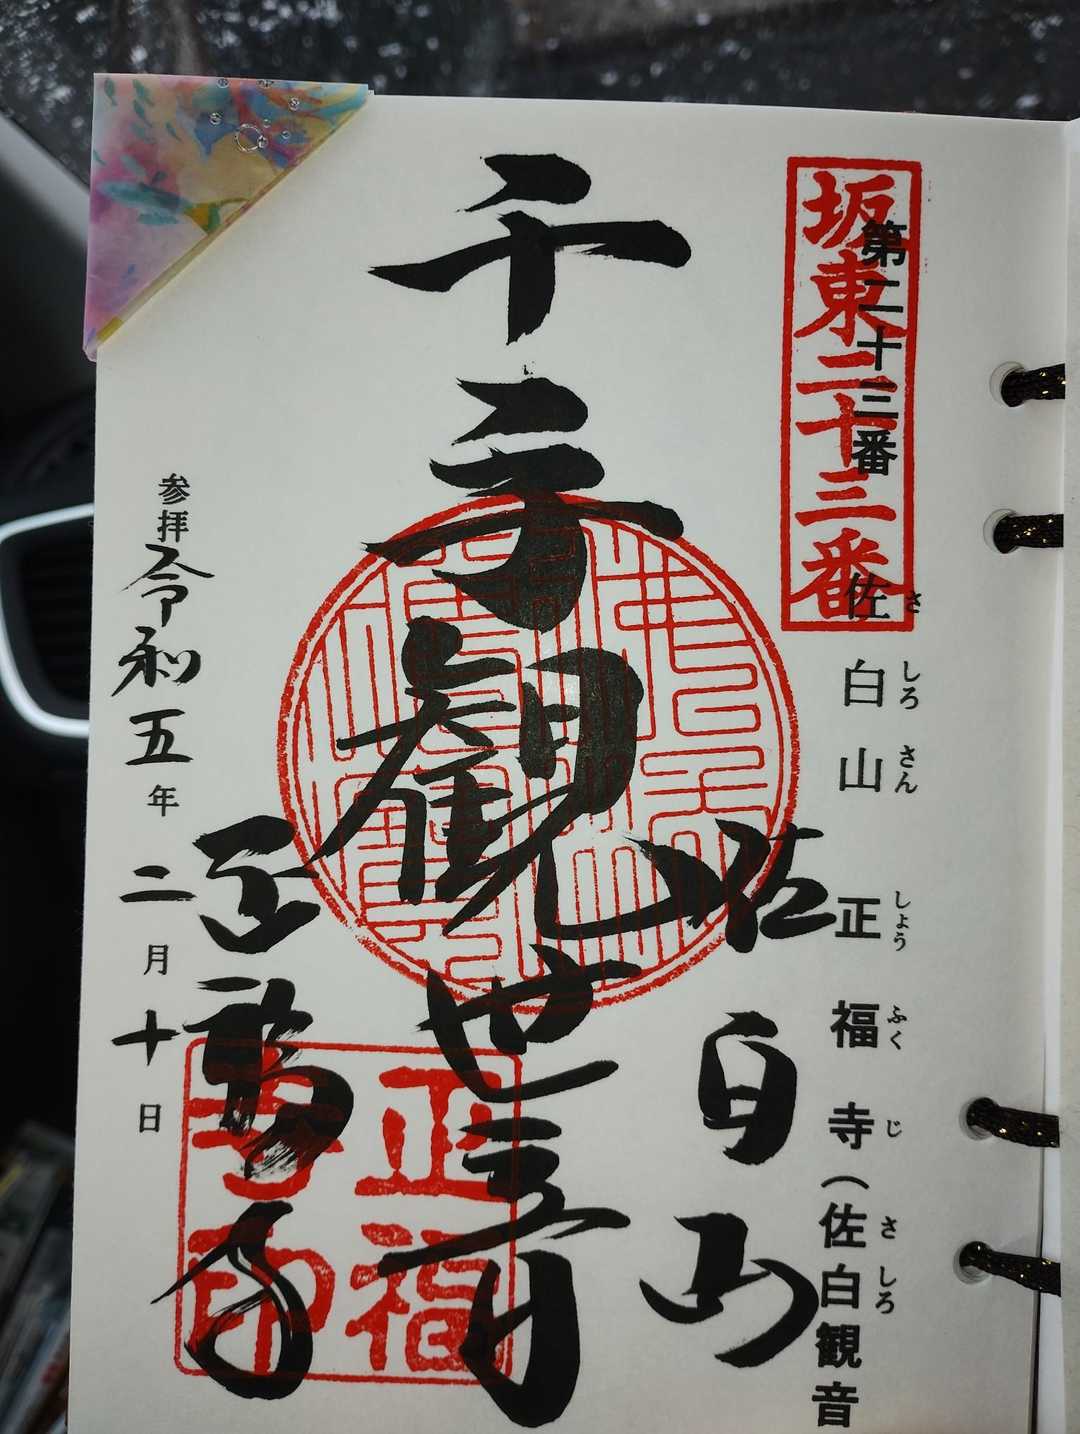 坂東二十三番
第二十三番 佐白山 正福寺(佐白観音
さ しろ さん しょう ふく じ さ しろ
佐白山
千手観世音
正福寺
正福寺印
参拝 令和五年 二月十日